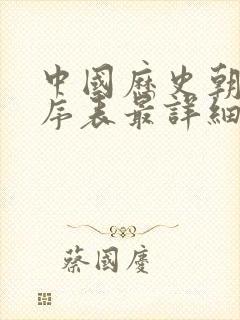 中國歷史朝
序表最詳細
蔡國慶